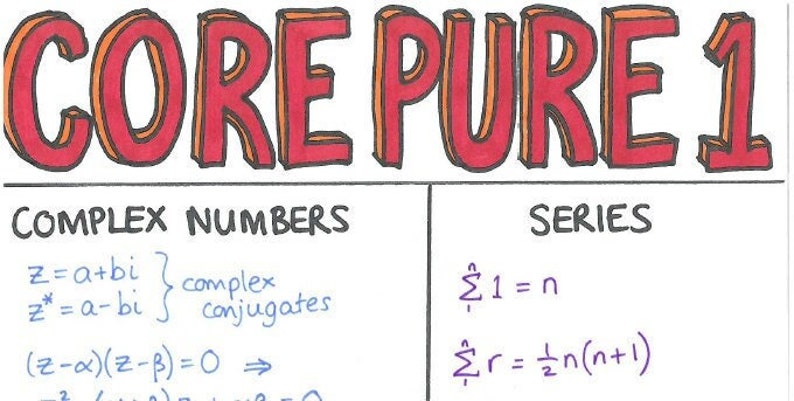 CORE PURE 1
COMPLEX NUMBERS
z = a+bi
z* = a-bi
} complex conjugates
(z-α)(z-β) = 0 ⇒
SERIES
n
Σ 1 = n
1
n
Σ r = ½n(n+1)
1